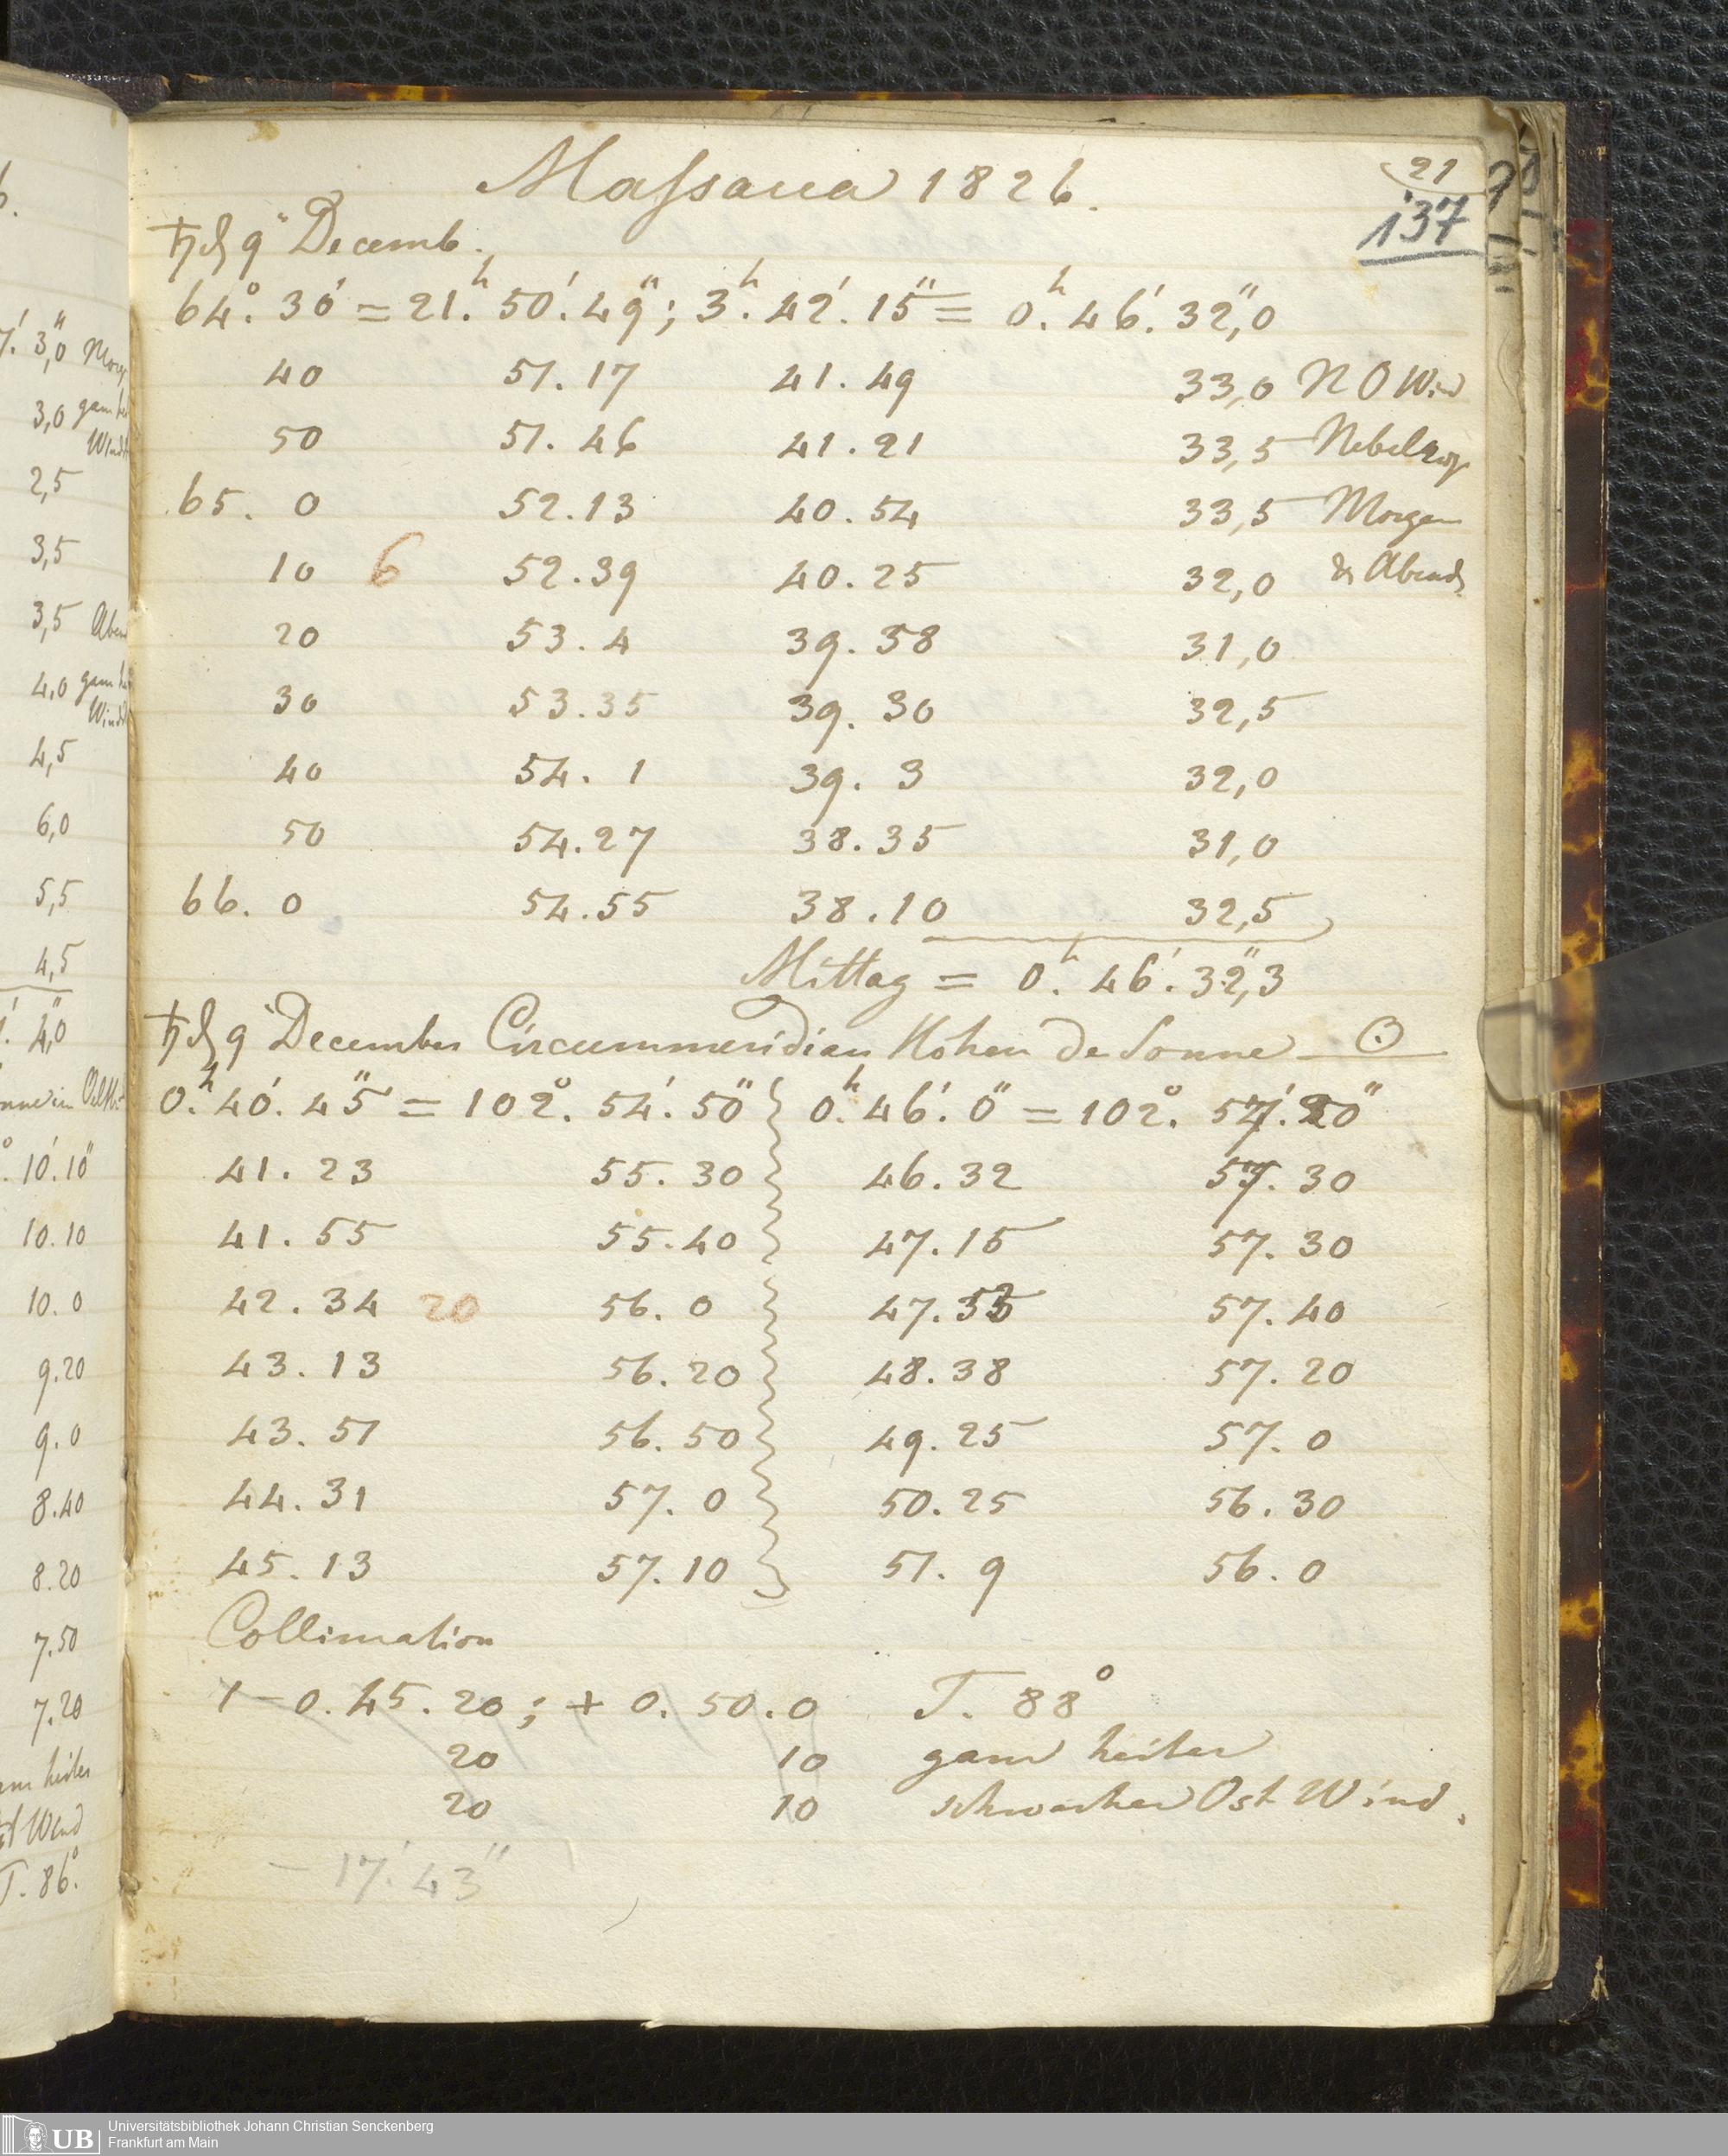 Massaua 1826.
21
137
♄ d 9" Decemb.
64°. 30' = 21.h 50'. 49"; 3.h 42'. 15" = 0.h 46'. 32,"0
40 51. 17 41. 49 33,0 N O Wind
50 51. 46 41. 21 33,5
65. 0 52. 13 40. 54 33,5 Morgen
10 6 52. 39 40. 25 32,0 & Abends
20 53. 4 39. 58 31,0
30 53. 35 39. 30 32,5
40 54. 1 39. 3 32,0
50 54. 27 38. 35 31,0
66. 0 54. 55 38. 10 32,5
Mittag = 0.h 46'. 32,"3
♄ d 9" December Circummeridian Höhen de Sonne ☉
0.h 40'. 45" = 102°. 54'. 50" } 0.h 46'. 0" = 102°. 57'. 20"
41. 23 55. 30 46. 32 57. 30
41. 55 55. 40 47. 15 57. 30
42. 34 20 56. 0 47. 55 57. 40
43. 13 56. 20 48. 38 57. 20
43. 51 56. 50 49. 25 57. 0
44. 31 57. 0 50. 25 56. 30
45. 13 57. 10 51. 9 56. 0
Collimation
– 0. 45. 20; + 0. 50. 0 T. 88°
20 10 ganz heiter
20 10 schwacher Ost Wind.
– 17'. 43"
3,"0
3,0
2,5
3,5
3,5
4,0
4,5
6,0
5,5
4,5
4,"0
10'. 10"
10. 10
10. 0
9. 20
9. 0
8. 40
8. 20
7. 50
7. 20
heiter
Wind
T. 86°.
UB
Universitätsbibliothek Johann Christian Senckenberg
Frankfurt am Main